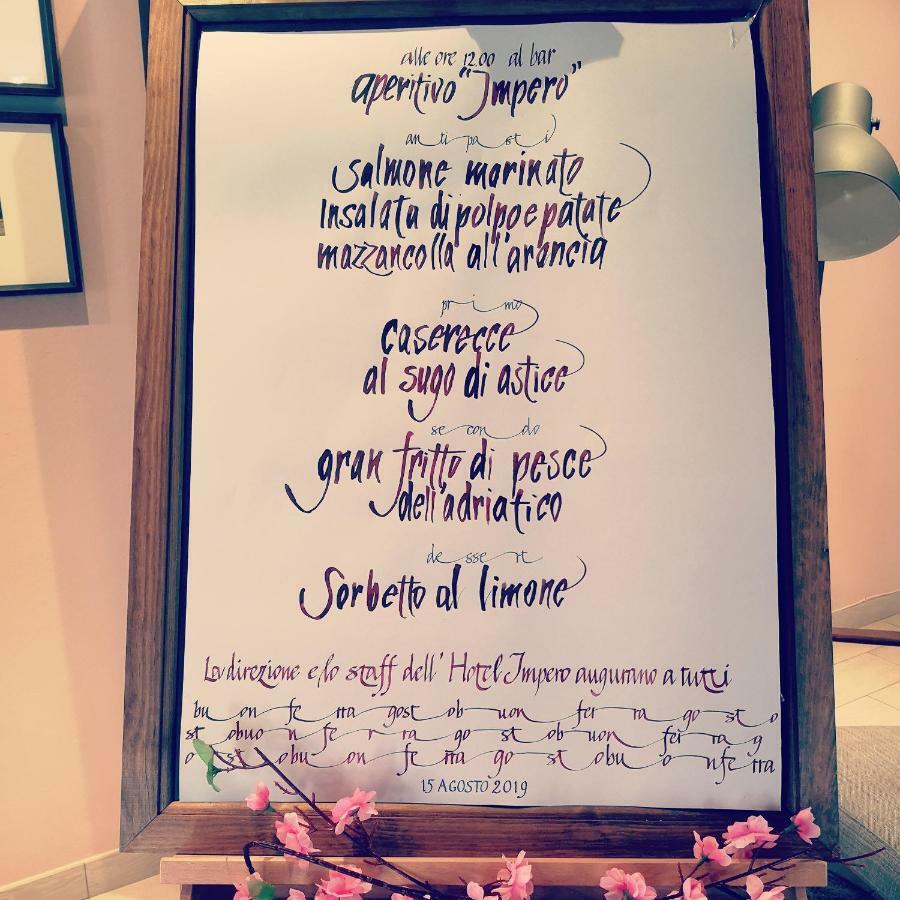 alle ore 12.00 al bar
aperitivo "Impero"
antipasti
salmone marinato
Insalata di polpo e patate
mazzancolla all'arancia
primo
caserecce
al sugo di astice
secondo
gran fritto di pesce
dell'adriatico
dessert
Sorbetto al limone
La direzione e lo staff dell' Hotel Impero augurano a tutti
buon ferragost obuon ferragosto
st obuon ferragost obuon ferrag
o st obuon ferragost obuonferra
15 AGOSTO 2019